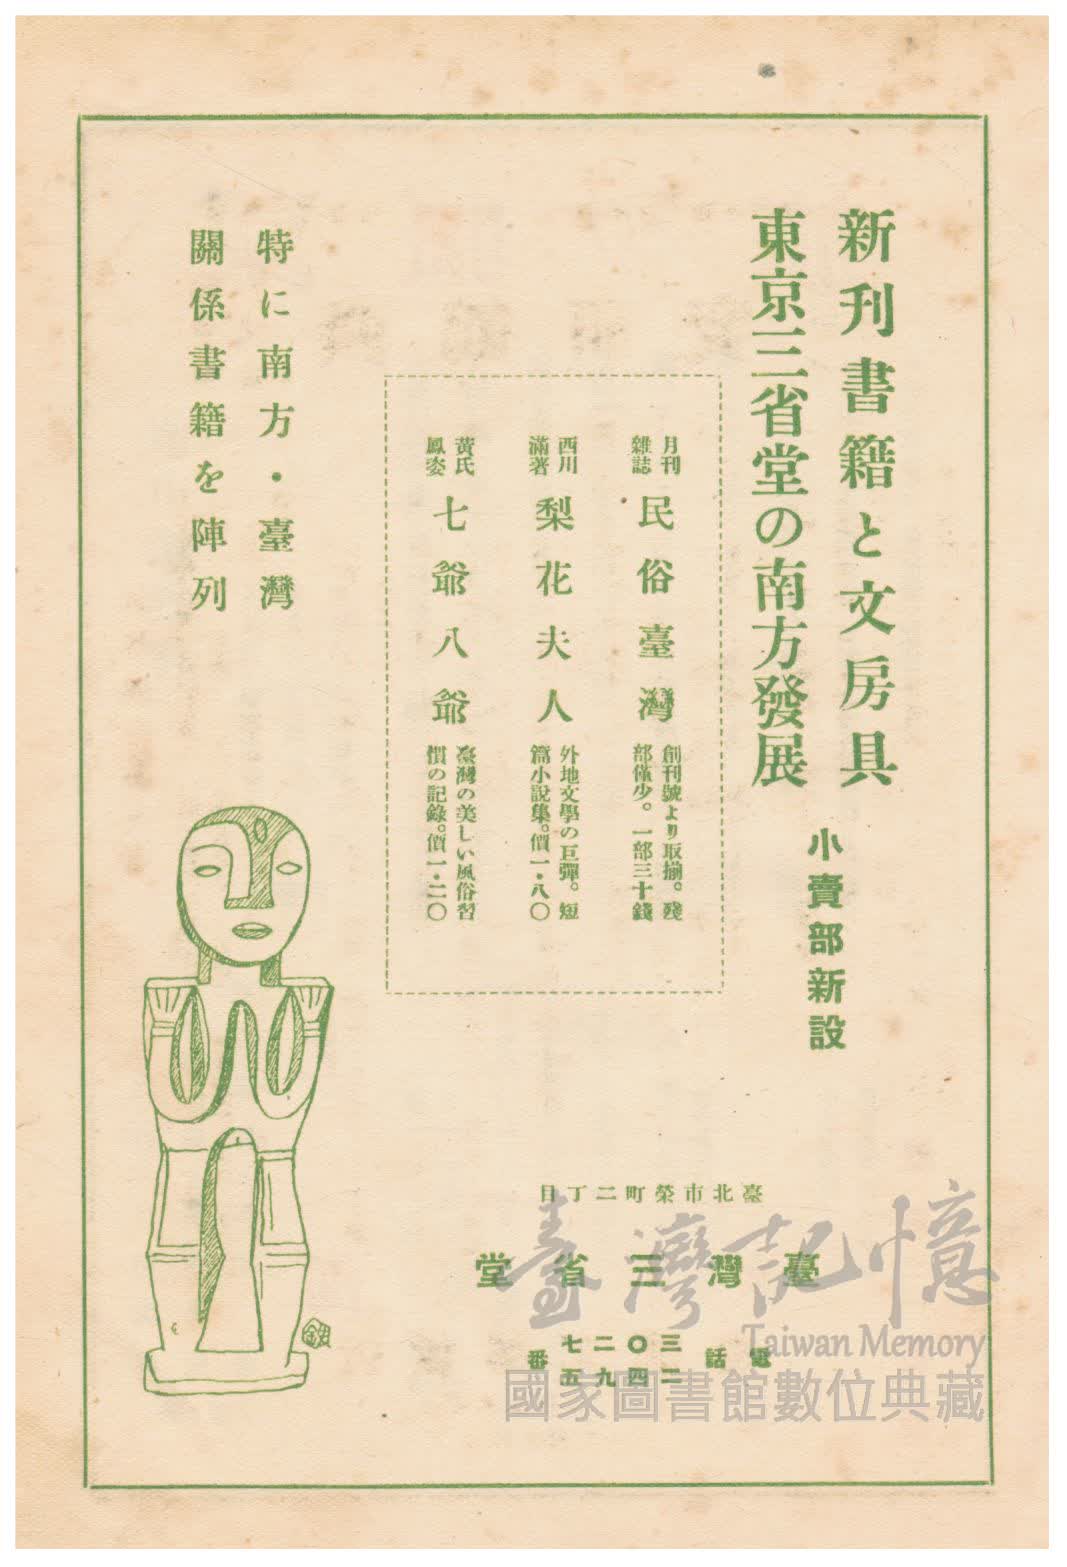 新刊書籍と文房具
東京三省堂の南方發展
小賣部新設
月刊
雜誌
民俗臺灣
創刊號より取揃。殘
部僅少。一部三十錢
西川
滿著
梨花夫人
外地文學の巨彈。短
篇小說集。價一・八〇
黃氏
鳳姿
七爺八爺
臺灣の美しい風俗習
慣の記錄。價一・二〇
特に南方・臺灣
關係書籍を陣列
臺北市榮町二丁目
臺灣三省堂
電話
三〇二七
二四九五
番
臺灣記憶
Taiwan Memory
國家圖書館數位典藏